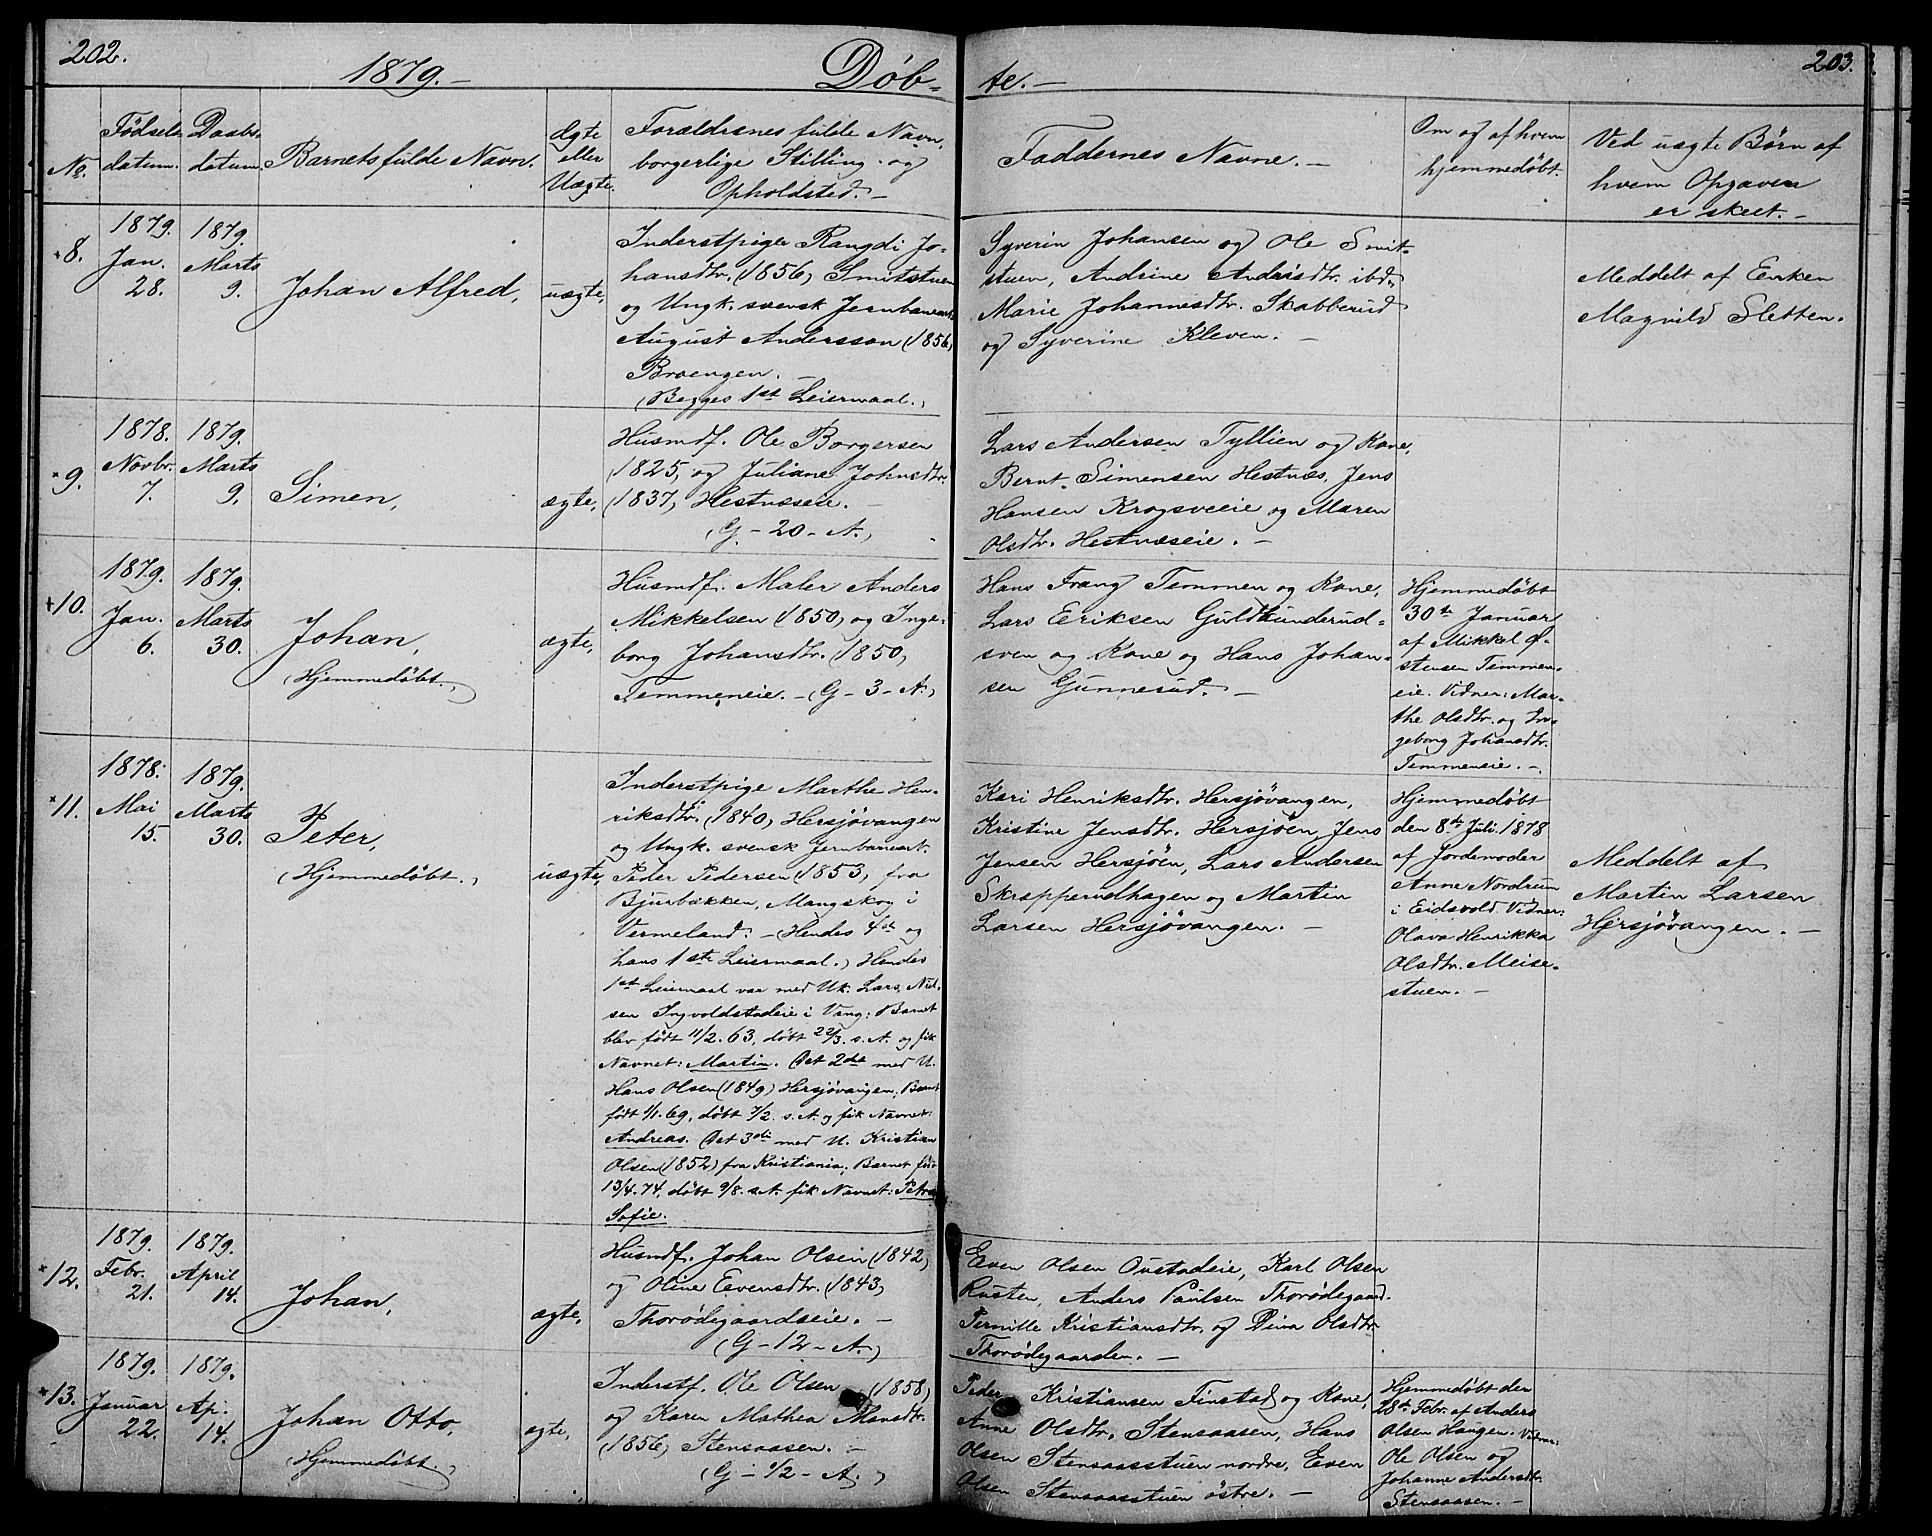 202.
1879.-
Døb-
te.-
203.
No.
Fødsels
datum.
Daabs-
datum.
Barnets fulde Navn.
Ægte
eller
Uægte.
Forældrenes fulde Navn,
borgerlige Stilling og
Opholdsted.-
Faddernes Navne.-
Om og af hvem
hjemmedøbt.
Ved uægte Børn af
hvem Opgaven
er skeet.-
8.
1879.
Jan.
28.
1879.
Marts
9.
Johan Alfred,
uægte,
Inderstpiger Rangdi Jo-
hansdtr. (1856) Smitstuen
og Ungk. svensk Jernbanearb.
August Andersson (1856)
Broengen. -
(Begges 1st Leiermaal.)
Syverin Johansen og Ole Smit-
stuen, Andrine Andersdtr. ibd.
Marie Johannesdtr. Skabberud
og Syverine Kleven. -
Meddelt af Enken
Magnild Sletten.
9.
1878.
Novbr.
7.
1879.
Marts
9.
Simen,
ægte,
Husmdf. Ole Borgersen
(1825) og Juliane Johnsdtr.
(1837) Hestnæseie. -
(G - 20 - A.)
Lars Andersen Tyllien og Kone,
Bernt Simensen Hestnæs, Jens
Hansen Krogsveeie og Maren
Olsdtr. Hestnæseie. -
10.
1879.
Jan.
6.
1879.
Marts
30.
Johan,
(Hjemmedøbt.)
ægte,
Husmdf. Maler Anders
Mikkelsen (1850) og Inge-
borg Johansdtr. (1850)
Temmeneie. - (G - 3 - A.)
Hans Frang Temmen og Kone,
Lars Eriksen Guldhunderud-
sven og Kone og Hans Johan-
sen Gunnerud. -
Hjemmedøbt
30te Januar
af Mikkel Ø-
stensen Temmen-
eie. Vidner: Mar-
the Olsdtr. og In-
geborg Johansdtr.
Temmeneie. -
11.
1878.
Mai
15.
1879.
Marts
30.
Peter,
(Hjemmedøbt.)
uægte,
Inderstpige Marthe Hen-
riksdtr. (1840) Hersjøvangen
og Ungk. svensk Jernbanearb.
Peder Pedersen (1853) fra
Bjurbækken, Mangskog i
Vermeland. - (Hendes 4de og
hans 1ste Leiermaal.) Hendes
1st Leiermaal var med Uk. Lars Niel-
sen Ingvoldstadeie i Vang: Barnet
blev født 11/2. 63, døbt 22/3. s. A. og fik
Navnet: Martin. Det 2det med U.
Hans Olsen (1849) Hersjøvangen, Barnet
født 1/1. 69, døbt 7/2. s. A. og fik Navnet:
Andreas. Det 3die med U. Kristian
Olsen (1852) fra Kristiania; Barnet født
13/4. 74, døbt 9/8. s. A. fik Navnet: Petra
Sofie.
Kari Henriksdtr. Hersjøvangen,
Kristine Jensdtr. Hersjøen, Jens
Jensen Hersjøen, Lars Andersen
Skrepperudhagen og Martin
Larsen Hersjøvangen. -
Hjemmedøbt
den 8de Juli 1878
af Jordemoder
Anne Nordrum
i Eidsvold. Vidner:
Olava Henrikka
Olsdtr. Meise-
stuen. -
Meddelt af
Martin Larsen
Hersjøvangen. -
12.
1879.
Febr.
21.
1879.
April
14.
Johan,
ægte,
Husmdf. Johan Olsen (1842)
og Oline Evensdtr. (1843)
Thorødegaardseie. -
(G - 12 - A.)
Even Olsen Oustadeie, Karl Olsen
Rusten, Anders Paulsen Thorødegaard.
Pernille Kristiansdtr. og Dina Olsdtr.
Thorødegaarden. -
13.
1879.
Januar
22.
1879.
Ap.
14.
Johan Otto,
(Hjemmedøbt.)
ægte,
Inderstf. Ole Olsen (1858)
og Karen Mathea Monsdtr.
(1856) Stensaasen. -
(G - 1/2 - A.)
Peder Kristiansen Finstad og Kone,
Anne Olsdtr. Stensaasen, Hans
Olsen Stensaasstuen nordre, Even
Olsen Stensaasstuen østre. -
Hjemmedøbt den
28de Febr. af Anders
Olsen Haugen. Vidner:
Ole Olsen og
Johanne Andersdtr.
Stensaasen. -